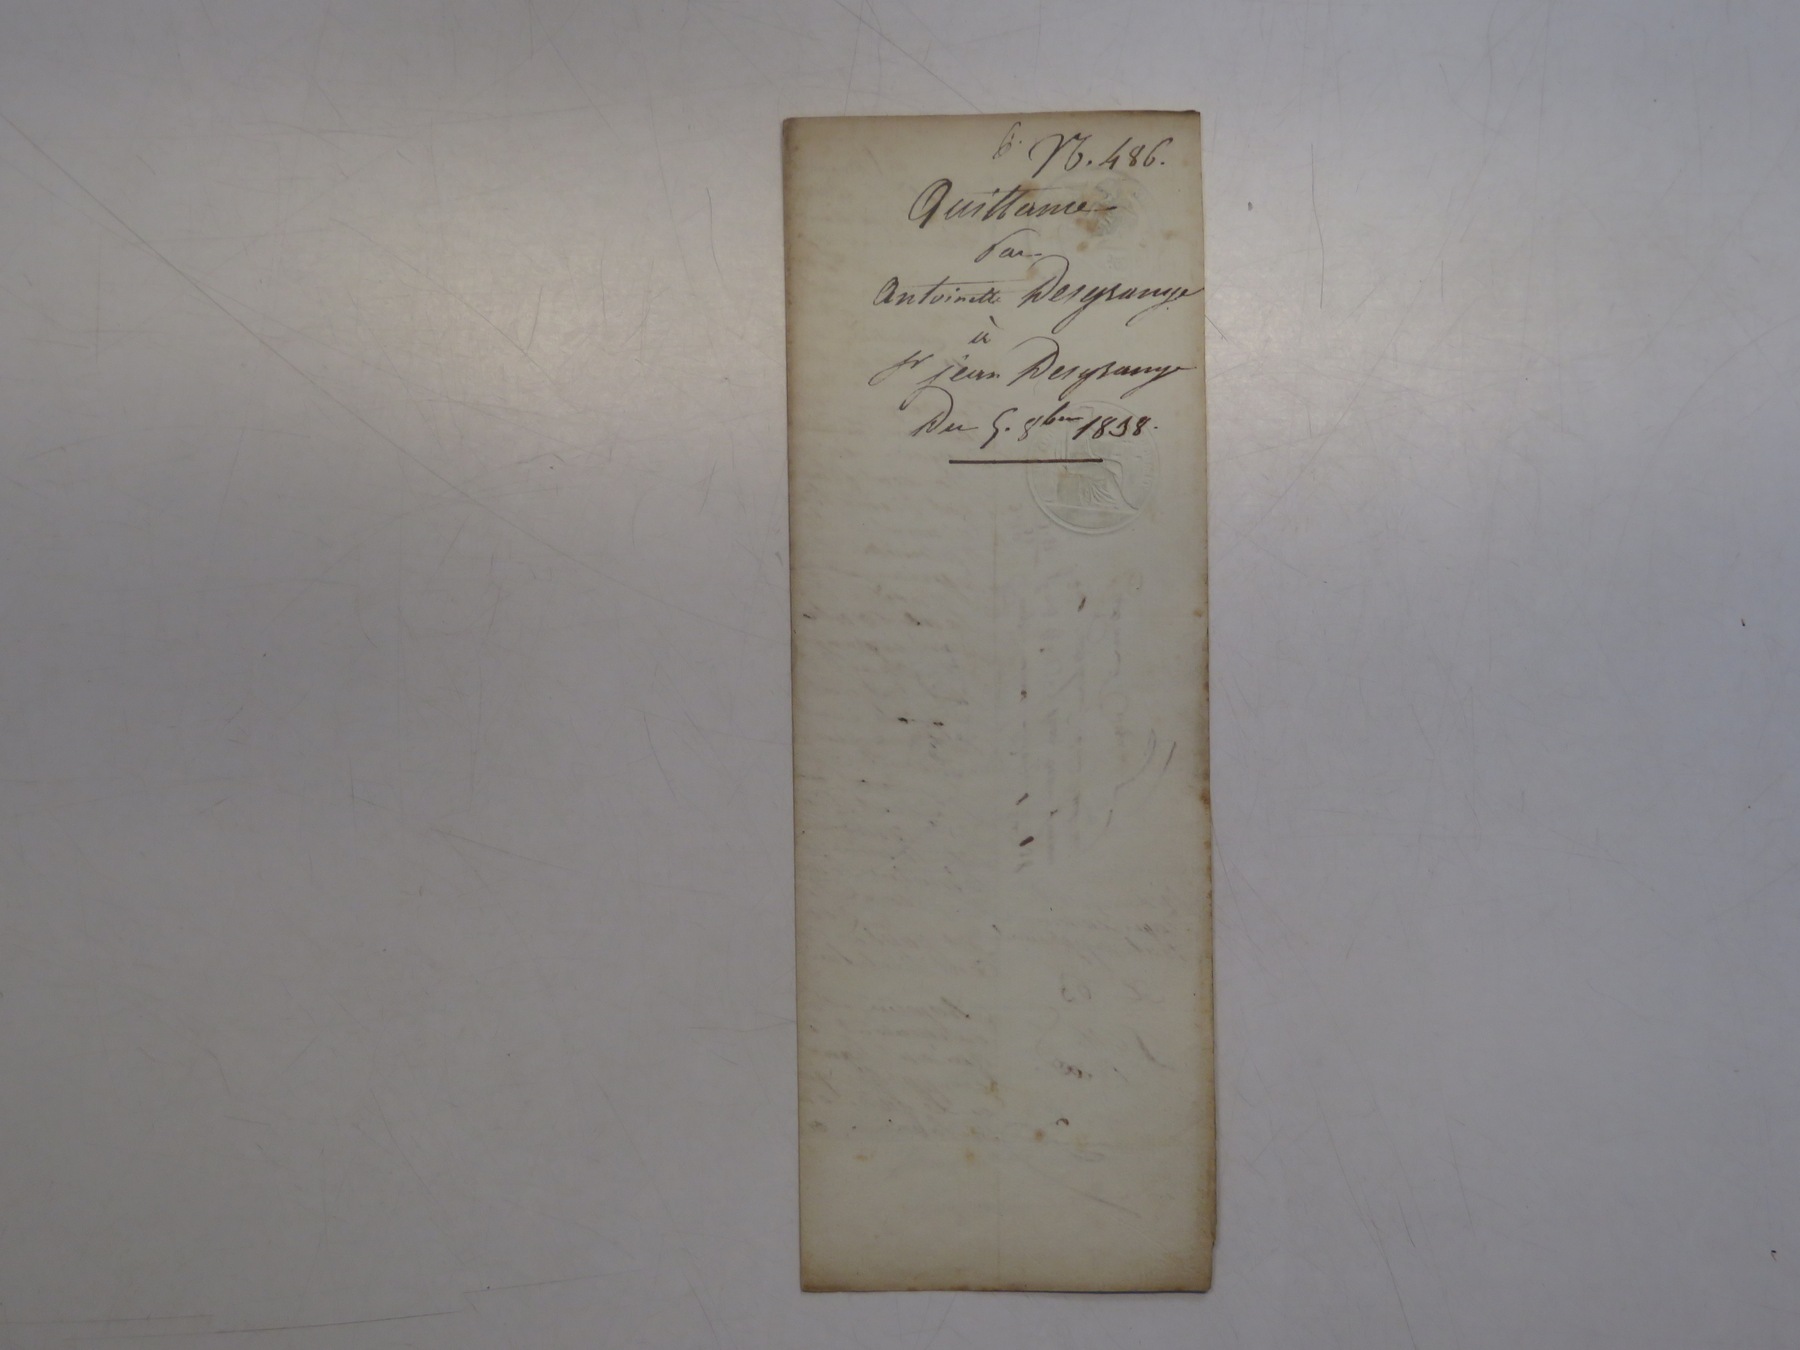 6. N. 486.
Quittance
Par
Antoinette Desgrange
à
Sr jean Desgrange
Du 5. 8bre 1838.